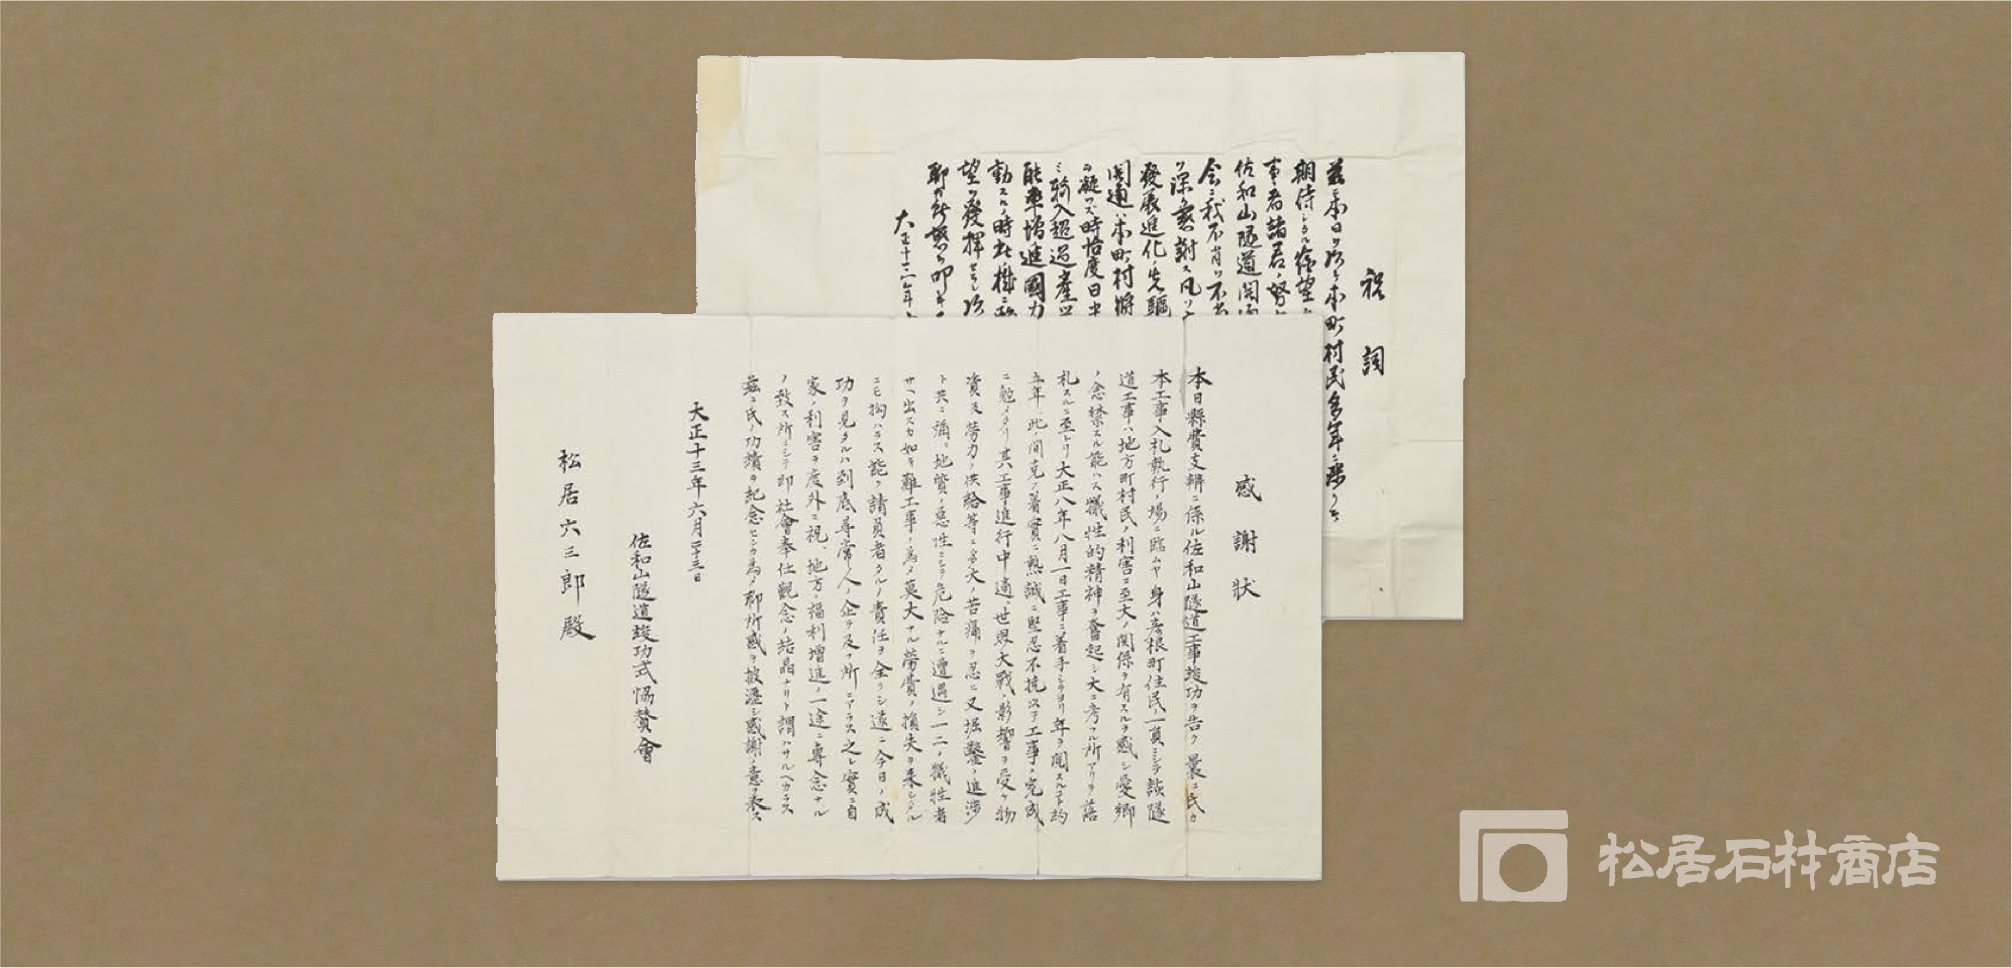 祝詞
茲ニ本日ヲ以テ本町村民多年ニ亘リテ
期待シタル
事者諸君ノ努
佐和山隧道開通
会ニ我不肖ヲ不
ヲ深ク感謝ス凡ソ
發展進化ノ先驅
開通ハ本町村將
時恰度日
輸入超過產
能率增進國力
勤スルノ時
望ヲ發揮セラレ
聊カ
大正十三年
感謝状
本日縣費支辨ニ係ル佐和山隧道工事竣功ヲ告ク曩ニ氏カ
本工事入札執行ノ場ニ臨ムヤ身ハ彦根町住民ノ一員ニシテ該隧
道工事ハ地方町村民ノ利害ニ至大ノ関係ヲ有スルヲ感シ愛郷
ノ念禁スル能ハス犠牲的精神ヲ奮起シ大ニ考フル所アリテ落
札スルニ至レリ大正八年八月一日工事ニ着手シテヨリ年ヲ閲スルコト約
五年、此ノ間克ク着實ニ熱誠ニ堅忍不抜以テ工事ノ完成
ニ勉メタリ其工事進行中適、世界大戰ノ影響ヲ受ケ物
資及労力ノ供給等ニ多大ノ苦痛ヲ忍ヒ又堀鑿ノ進渉
ト共ニ漸ニ地質ノ悪性ニシテ危険ナルニ遭遇シ一二ノ犠牲者
サヘ出スカ如キ難工事ノ為メ莫大ナル労費ノ損失ヲ来シタル
ニモ拘ハラス能ク請負者タルノ責任ヲ全クシ遂ニ今日ノ成
功ヲ見タルハ到底尋常ノ人ノ企テ及フ所ニアラス之レ實ニ自
家ノ利害ヲ度外ニ視、地方ノ福利増進ノ一途ニ専念ナル
ノ致ス所ニシテ即社會奉仕観念ノ結晶ナリト謂ハサルヘカラス
茲ニ氏ノ功績ヲ紀念センカ為メ聊所感ヲ披瀝シ感謝ノ意ヲ表ス
大正十三年六月二十三日
佐和山隧道竣功式協賛會
松居六三郎殿
松居石材商店